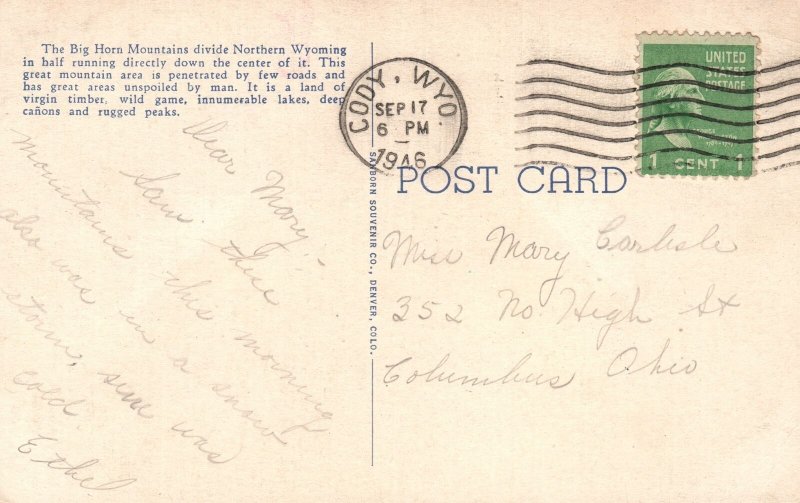 The Big Horn Mountains divide Northern Wyoming
in half running directly down the center of it. This
great mountain area is penetrated by few roads and
has great areas unspoiled by man. It is a land of
virgin timber, wild game, innumerable lakes, deep
cañons and rugged peaks.
Dear Mary:-
Saw these
mountains this morning
also was in a snow
storm, sure was
cold.
Ethel
SANBORN SOUVENIR CO., DENVER, COLO.
CODY, WYO.
SEP 17
6 PM
1946
UNITED
STATES
POSTAGE
1 CENT 1
POST CARD
Miss Mary Carlisle
352 No High St
Columbus Ohio